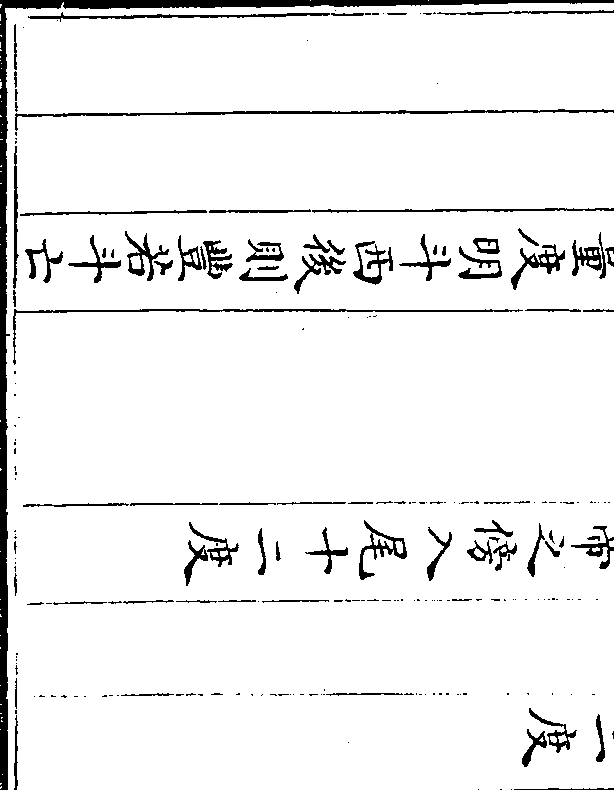 二度
帝之傍入尾十二度
量度明斗西後則豐若斗亡